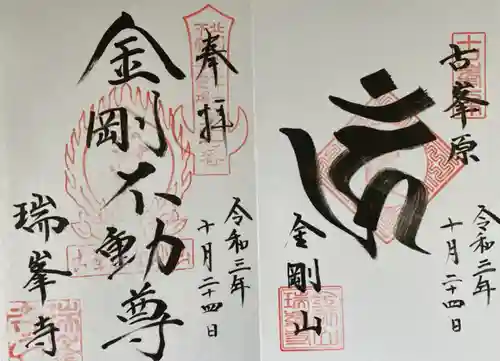 奉拝
令和三年
十月二十四日
金剛不動尊
瑞峯寺
古峯原
令和三年
十月二十四日
金剛山